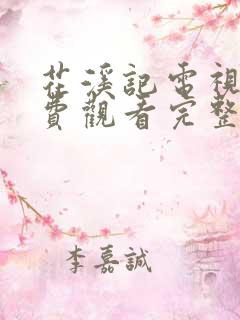 茌溪記電視
費觀看完整
李嘉誠